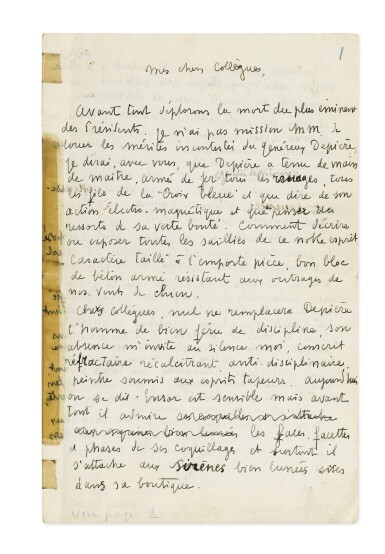 1
Mes chers Collègues,
Avant tout déplorons la mort du plus éminent
des Présidents, je n'ai pas mission MM. de
louer les mérites incontestés du généreux Depière,
je dirai, avec vous, que Depière a tenu de main
de maître, armé de fer tous les rouages, tous
les fils de la "Croix bleue" et que dire de son
action électro-magnétique et que penser des
ressorts de sa verte bonté. Comment décrire
ou exposer toutes les saillies de ce noble esprit
caractère taillé à l'emporte pièce, bon bloc
de béton armé résistant aux outrages de
nos vents de chien.
Chers collègues, nul ne remplacera Depière
l'homme de bien féru de discipline, son
absence m'invite au silence moi, conscrit
réfractaire récalcitrant, anti-disciplinaire,
peintre soumis aux esprits tapeurs, aujourd'hui
on se dit - Ensor est sensible mais avant
tout il admire
les faces, facettes
et phases de ses coquillages et surtout il
s'attache aux sirènes bien lunées sises
dans sa boutique.
voir page 2